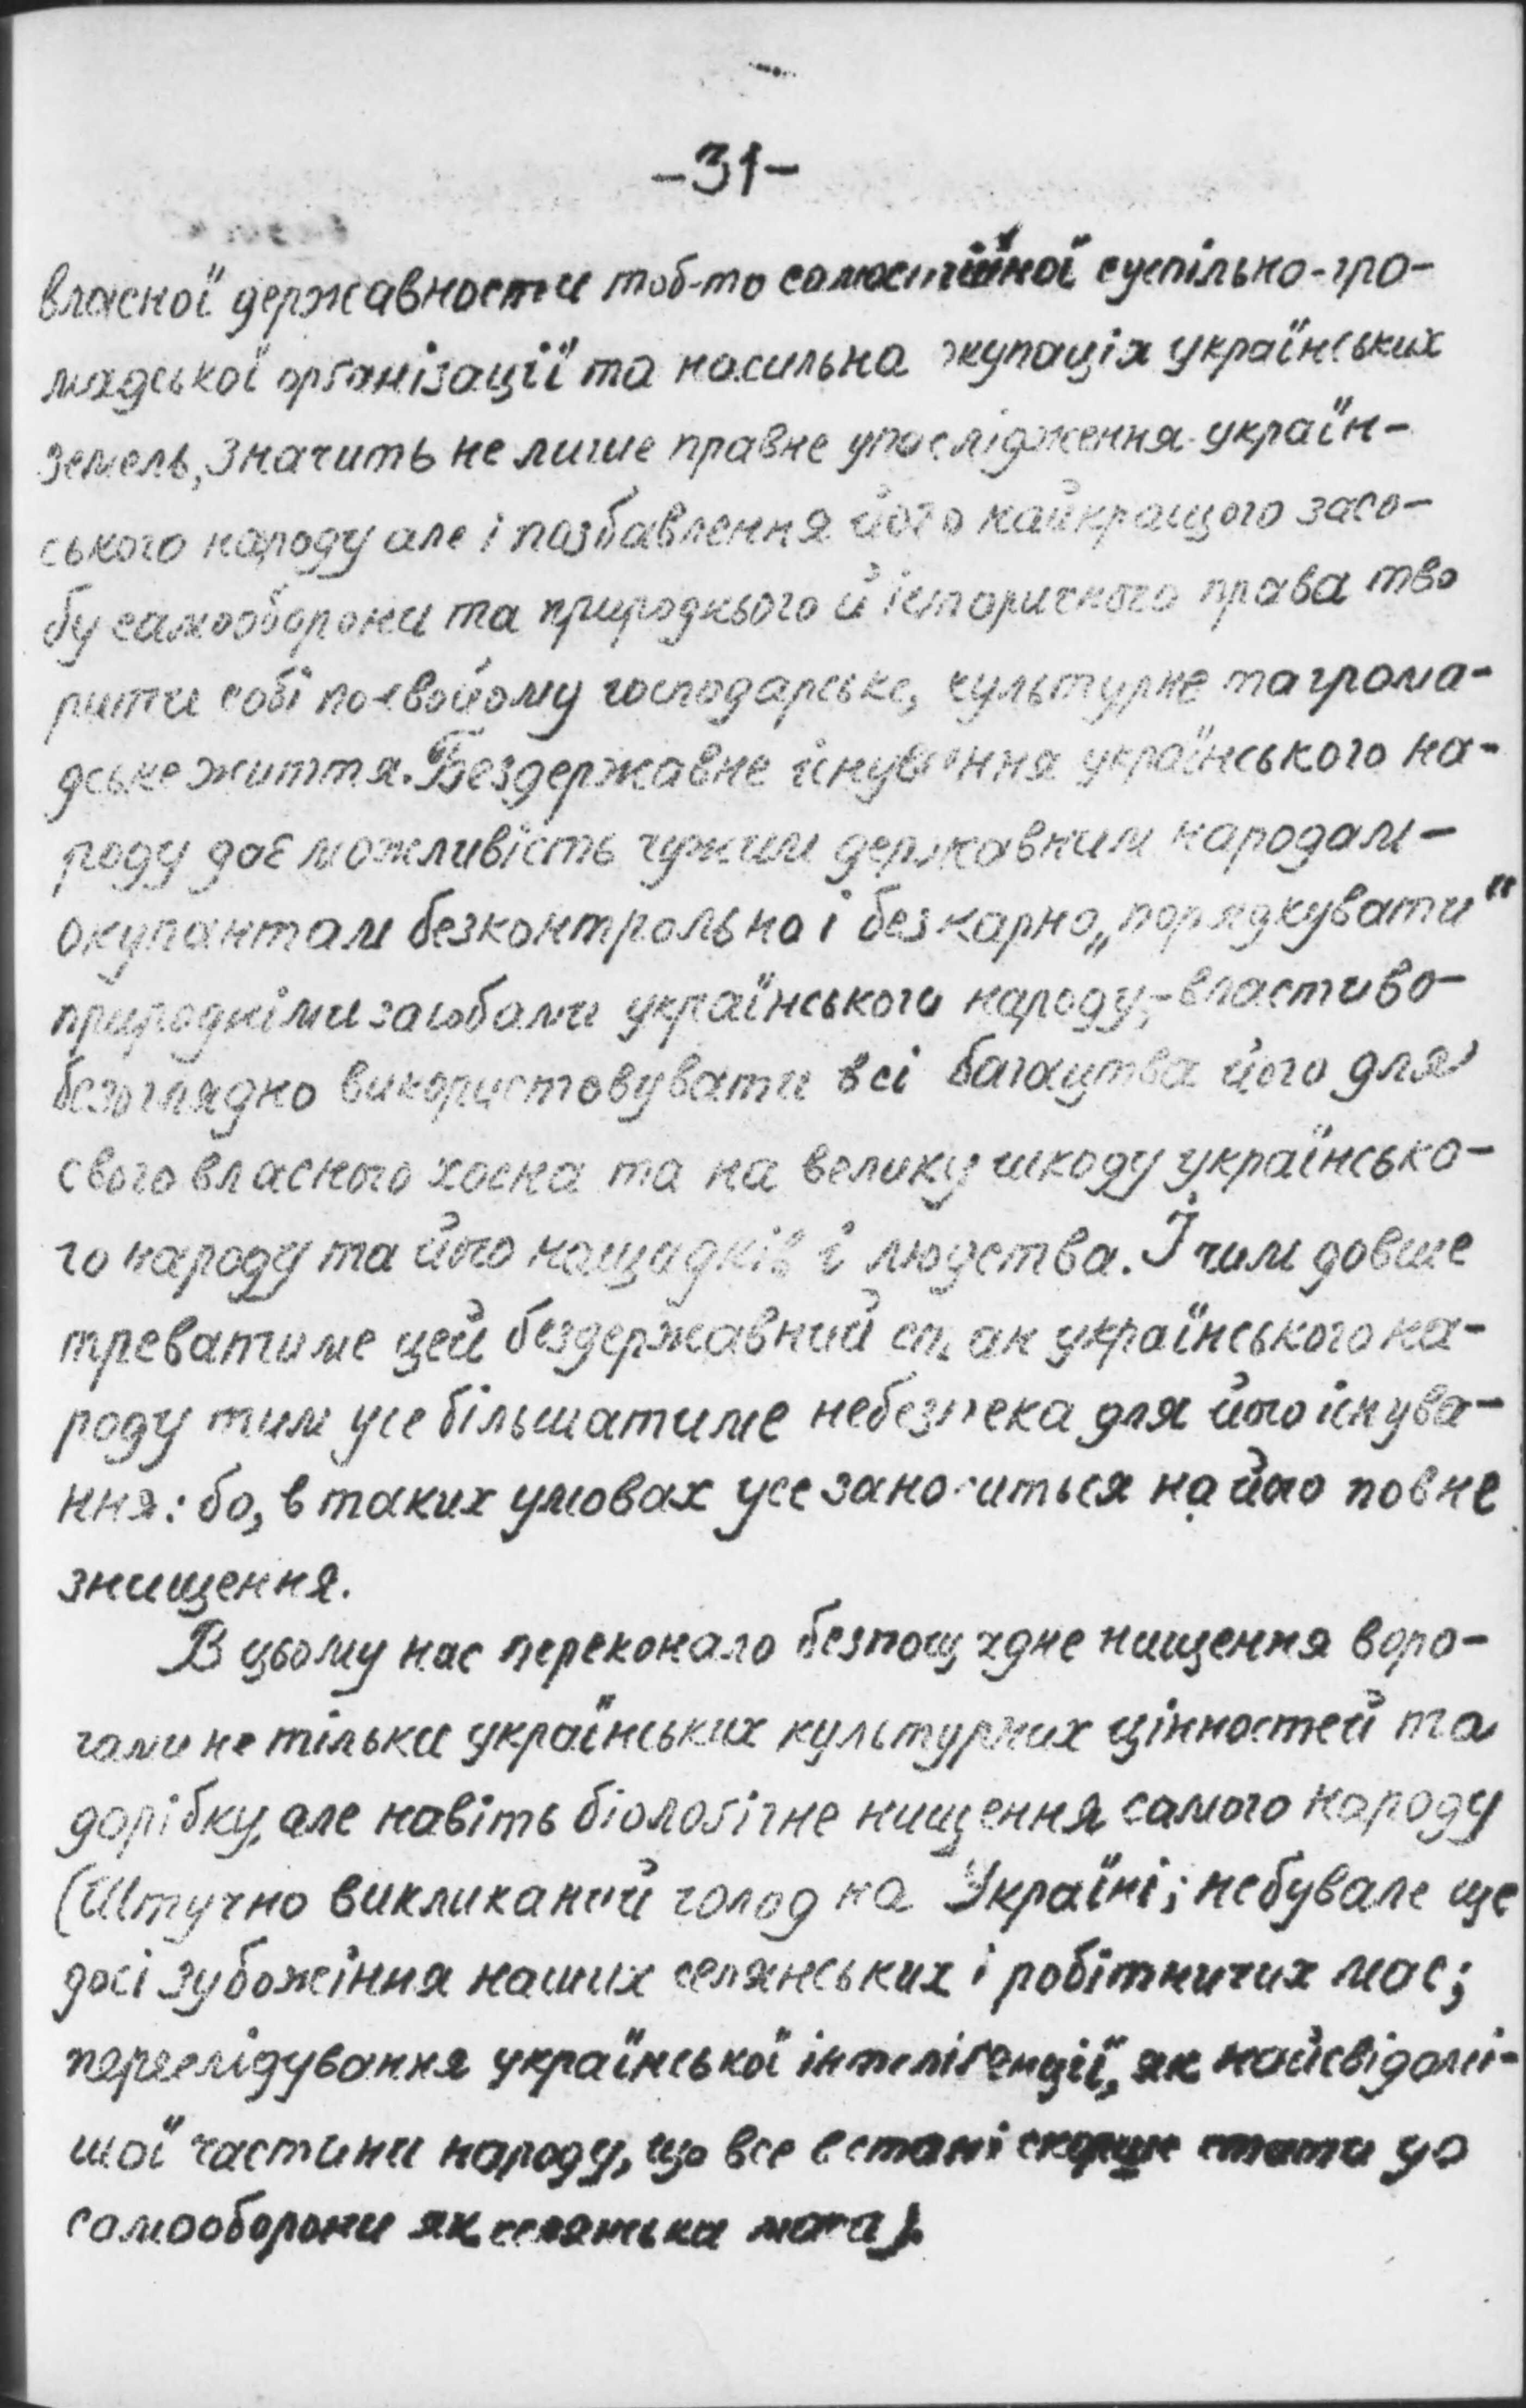 -31-
власної державности тоб-то самостійної суспільно-гро-
мадської орґанізації та насильна окупація українських
земель, значить не лише правне упослідження україн-
ського народу але і позбавлення його найкращого засо-
бу самооборони та природнього й історичного права тво
рити собі по-свойому господарське, культурне та грома-
дське життя. Бездержавне існування українського на-
роду дає можливість чужим державним народам-
окупантам безконтрольно і безкарно „порядкувати“
природніми засобами українського народу,-властиво-
безоглядно використовувати всі багацтва його для
свого власного хосна та на велику шкоду українсько-
го народу та його нащадків і людства. І чим довше
треватиме цей бездержавний стан українського на-
роду тим усе більшатиме небезпека для його існува-
ння: бо, в таких умовах усе заноситься на його повне
знищення.
В цьому нас переконало безпощадне нищення воро-
гами не тільки українських культурних цінностей та
дорібку, але навіть біолоґічне нищення самого народу
(Штучно викликаний голод на Україні; небувале ще
досі зубожіння наших селянських і робітничих мас;
переслідування української інтеліґенції, як найсвідомі-
шої частини народу, що все в стані скорше стати до
самооборони як селянська маса).